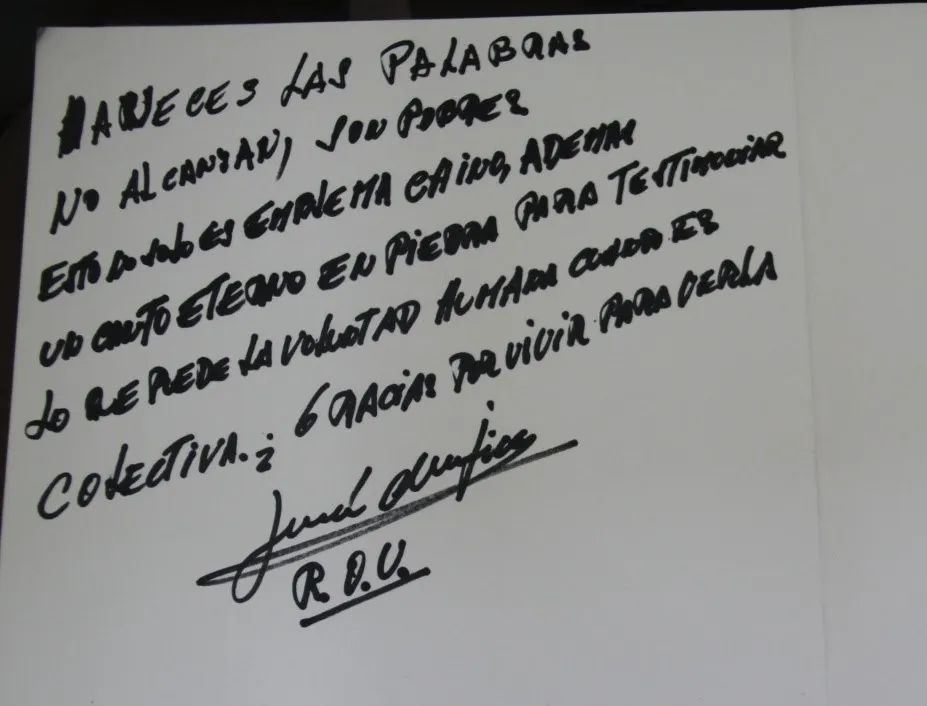 A VECES LAS PALABRAS
NO ALCANZAN, SON POBRES
ESTO NO SOLO ES EMBLEMA CHINO, ADEMAS
UN CANTO ETERNO EN PIEDRA PARA TESTIMONIAR
LO QUE PUEDE LA VOLUNTAD HUMANA CUANDO ES
COLECTIVA. ¿ GRACIAS POR VIVIR PARA VERLA
José Mujica
R.O.U.